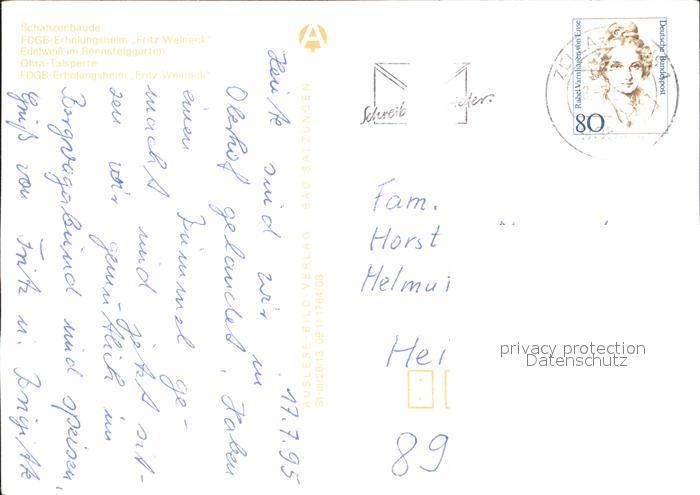 Schanzenbaude
FDGB-Erholungsheim „Fritz Weineck"
Edelweiß im Rennsteiggarten
Ohra-Talsperre
FDGB-Erholungsheim „Fritz Weineck"
17.7.95
Heute sind wir in
Oberhof gelandet. Haben
einen Bummel ge-
macht und jetzt sit-
zen wir gemütlich im
und speisen.
Gruß von Fritz u. Brigitte
AUSLESE-BILD-VERLAG BAD SALZUNGEN
Schreib
Deutsche Bundespost
Rahel Varnhagen von Ense
80
Fam.
Horst
Helmut
Hei
89
privacy protection
Datenschutz